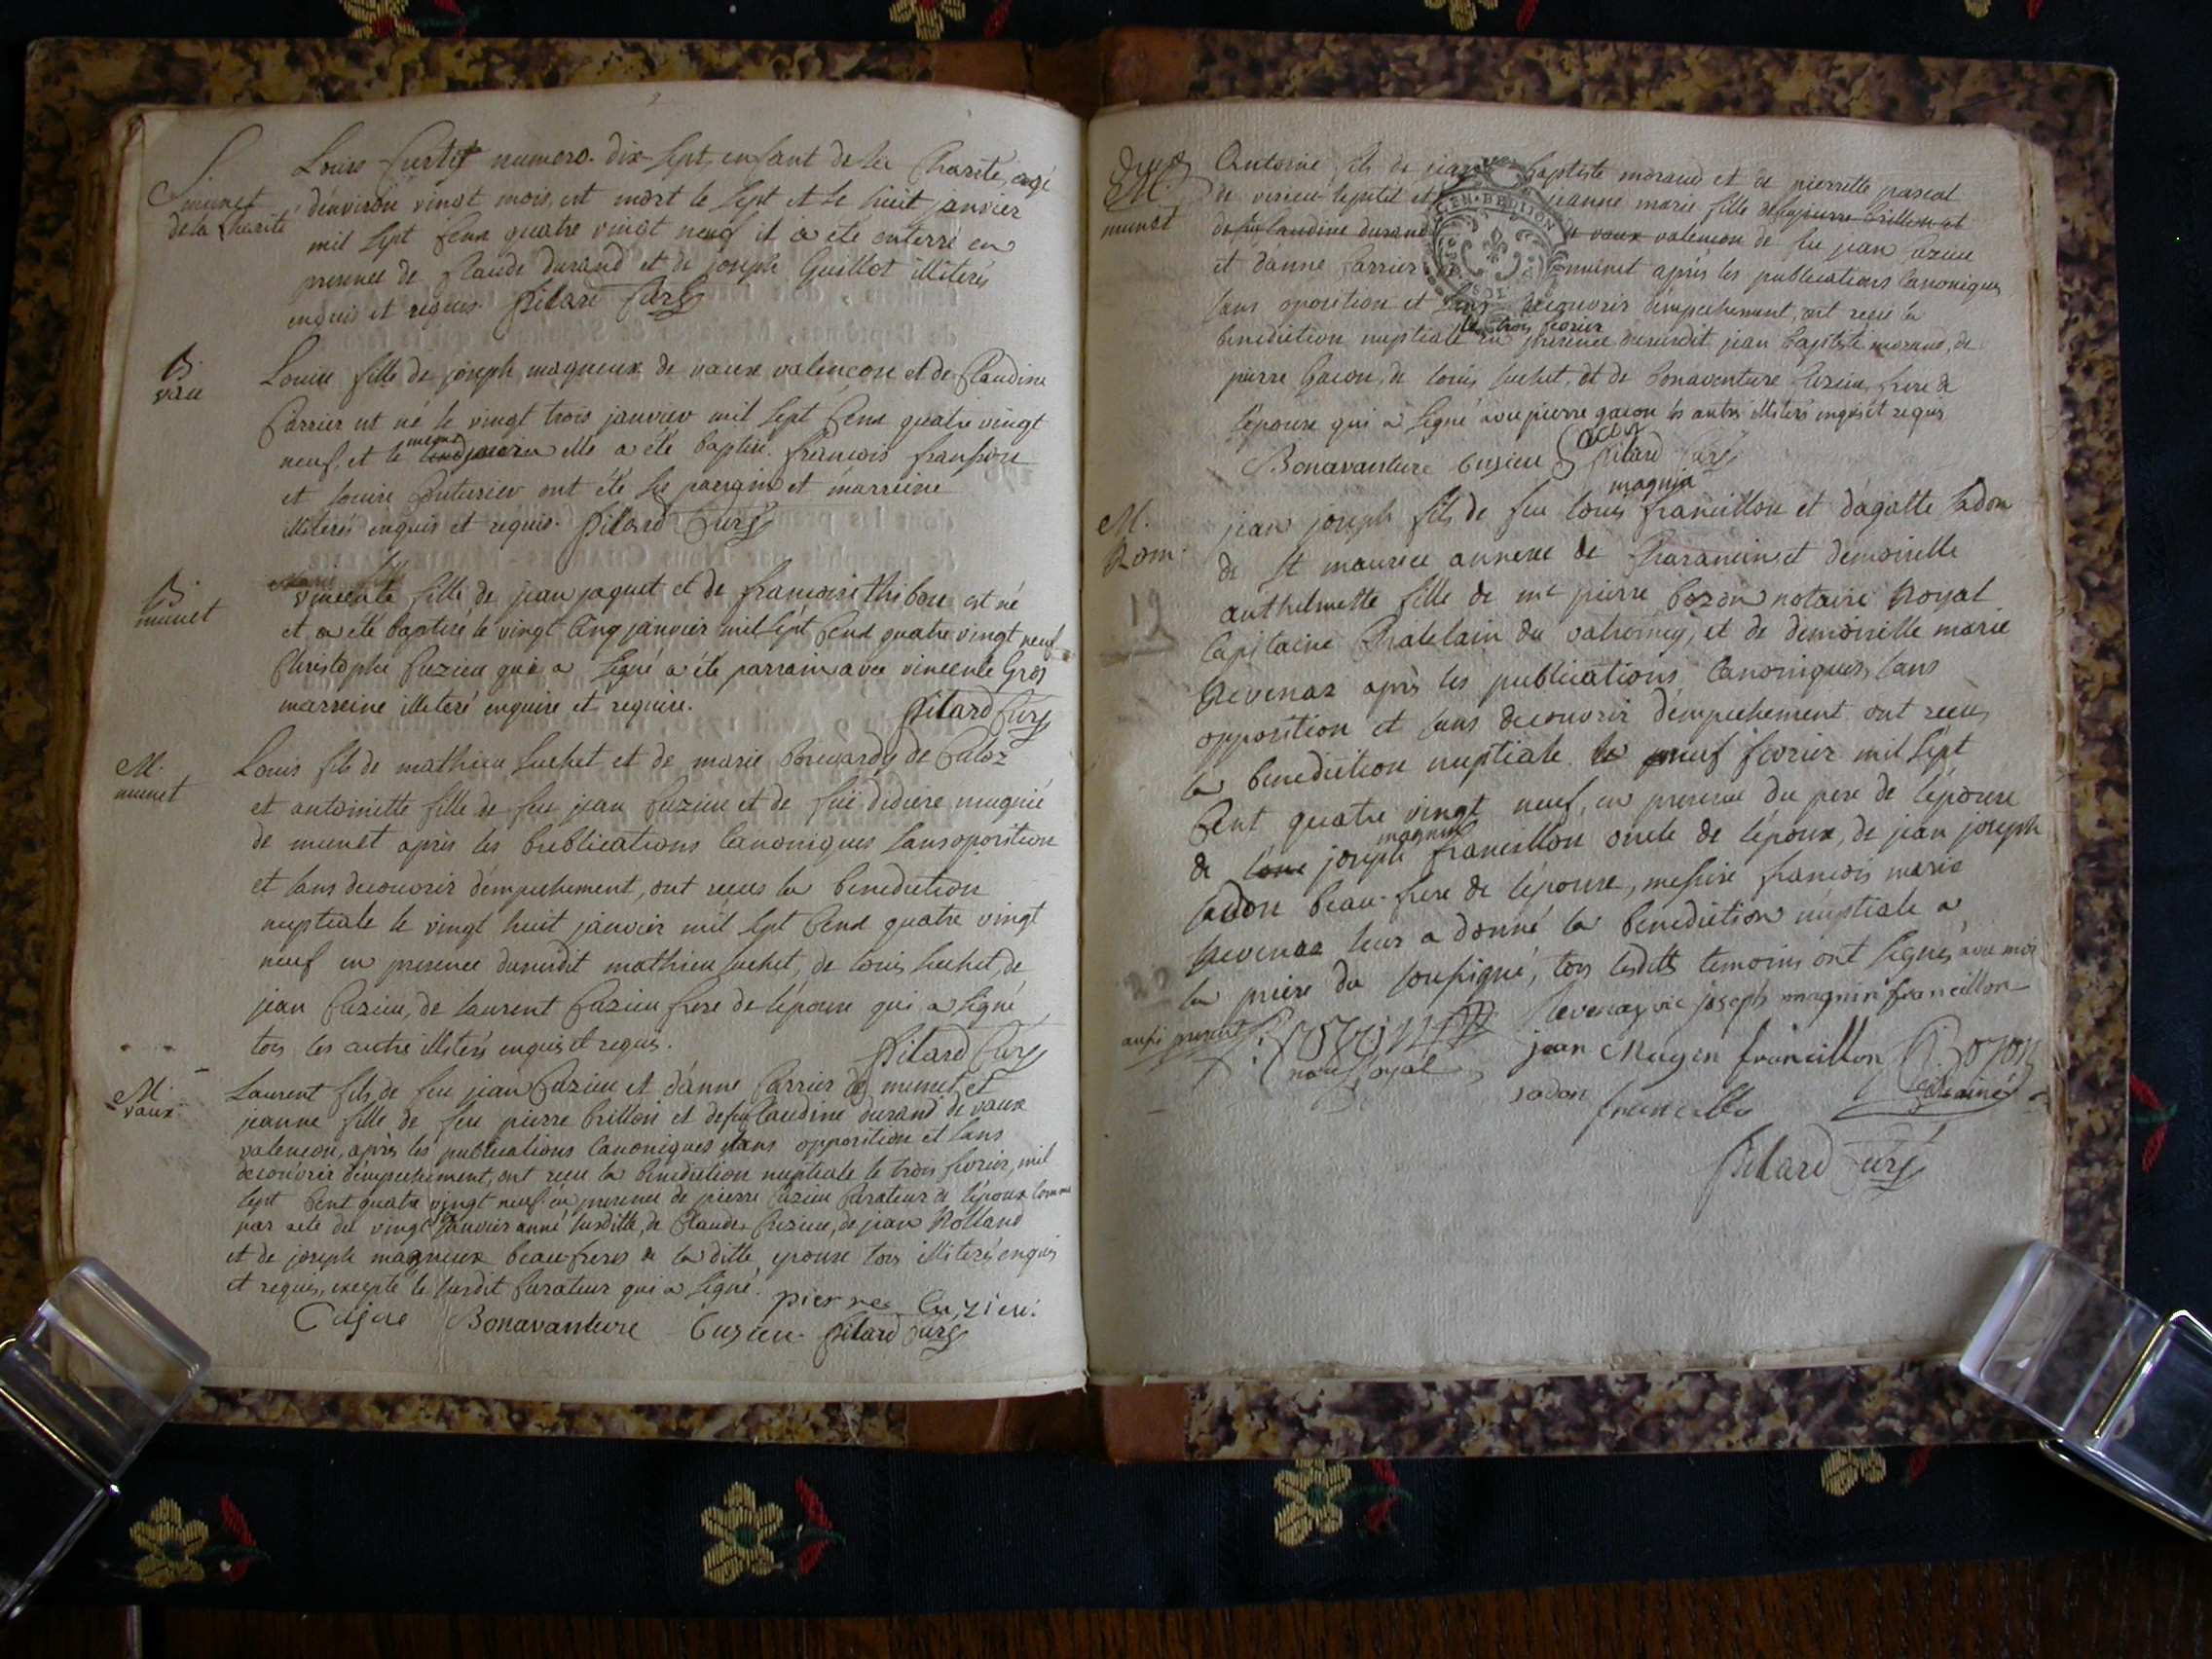 S.
munet
de la Charité
Louis numero dix-sept enfant de la Charité, agé
d'environ vingt mois, est mort le sept et le huit janvier
mil sept cent quatre vingt neuf il a été enterré en
presence de Claude durand et de joseph Guillot illiterés
enquis et requis. Pilard Curé
B.
vau
Louise fille de joseph magneux de vaux valencon et de Claudine
Carrier est né le vingt trois janvier mil sept cent quatre vingt
neuf, et le même elle a été baptisé. francois
et louise Couturier ont été les parrain et marreine
illiterés enquis et requis. Pilard Curé
B.
munet
vincente fille de jean jaquet et de francoise thibou est né
et a été baptisé le vingt cinq janvier mil sept cent quatre vingt neuf
Christophe Cuzieu qui a signé a été parrain avec vincente Gros
marreine illiteré enquise et requise.
Pilard Curé
M.
munet
Louis fils de mathieu suchet et de marie de Culoz
et antoinette fille de feu jean Cuzieu et de feüe didiere mugnié
de munet après les publications Canoniques sans oposition
et sans decouvrir d'empechement, ont recus la benediction
nuptiale le vingt huit janvier mil sept cent quatre vingt
neuf en presence dumêdit mathieu suchet, de louis suchet, de
jean Cuzieu, de laurent Cuzieu frere de l'épouse qui a signé
tous les autre illiterés enquis et requis.
Pilard Curé
M.
vaux
Laurent fils de feu jean Cuzieu et d'anne Carrier de munet, et
jeanne fille de feu pierre brillon et de feu Claudine durand de vaux
valencon, après les publications Canoniques sans opposition et sans
decouvrir d'empechement, ont recu la benediction nuptiale le trois fevrier, mil
sept cent quatre vingt neuf en presence de pierre Cuzieu Curateur de l'époux comme
par acte du vingt janvier anné susditte, de Claude Cuzieu, de jean Rolland
et de joseph magneux beau-freres de la ditte epouse tous illiterés enquis
et requis, excepté le susdit Curateur qui a signé. pierre Cuzieu.
Bonavanture Cuzieu Pilard Curé
M.
munet
Antoine fils de jean baptiste morand et de pierrette pascal
de virieu-le petit et jeanne marie fille de feu pierre brillon et
de feu Claudine durand de vaux valencon de feu jean Cuzieu
et d'anne Carrier munet après les publications Canoniques
sans oposition et sans decouvrir d'empechement, ont recu la
le trois fevrier
benediction nuptiale en presence dumêdit jean baptiste morand, de
pierre Gacon, de louis suchet, et de bonaventure Cuzieu frere de
l'épouse qui a signé avec pierre gacon les autres illiterés enquis et requis
Bonavanture Cuzieu Gacon Pilard Curé
M.
Rom.
magnin
jean joseph fils de feu louis francillon et d'agatte sadon
de St maurice annexe de Charancin et demoiselle
anthelmette fille de me pierre bozon notaire Royal
Capitaine Chatelain du valromey, et de demoiselle marie
Revenaz après les publications Canoniques, sans
opposition et sans decouvrir d'empechement ont recus
la benediction nuptiale le neuf fevrier mil sept
cent quatre vingt neuf, en presence du pere de l'épouse
magnin
de joseph francillon oncle de l'époux, de jean joseph
sadon beau-frere de l'épouse, messire francois marie
Revenaz leur a donné la benediction nuptiale a
la priere du soussigné, tous lesdits temoins ont signés avec moi
aussi present Bozon Revenaz vic joseph magnin francillon
not Royal jean Magnin francillon Bozon
sadon francillon
Pilard Curé